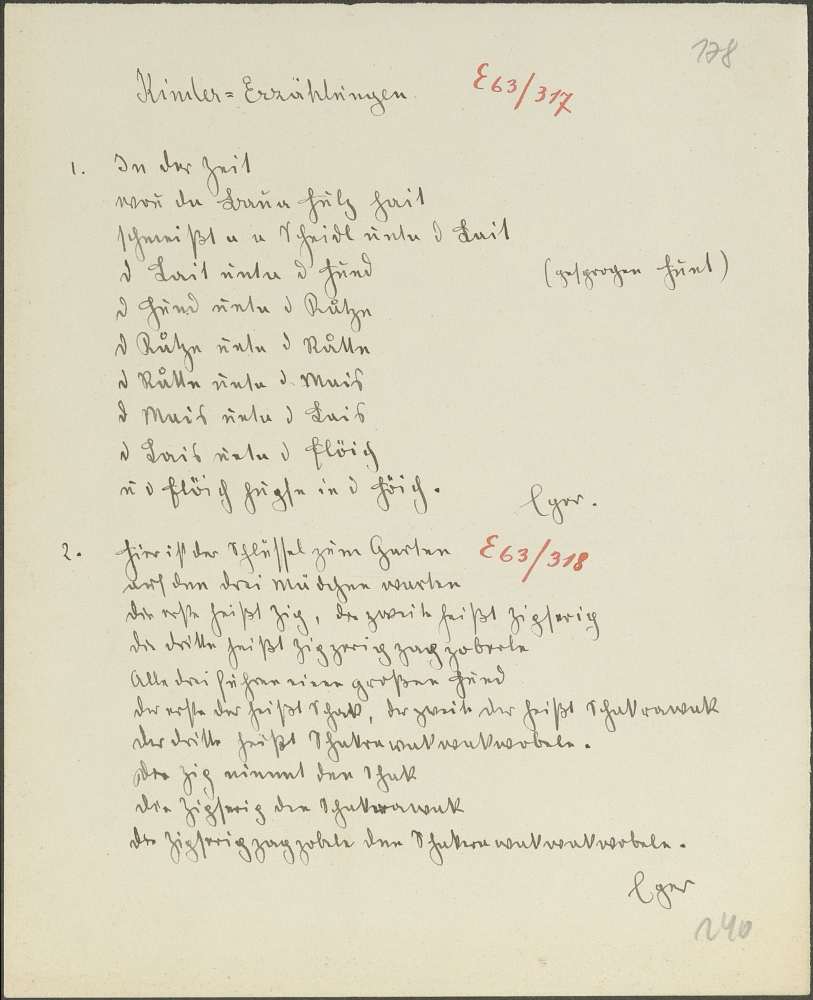 178
Kinder=Erzählungen E63/317
1. In der Zeit
wou da Baua hulz hait
schmeißt a a Scheidl unta d Lait
d Lait unta d Hund (gesprochen Hunt)
d Hund unta d Kåtzn
d Kåtzn unta d Råttn
d Råttn unta d Mais
d Mais unta d Lais
d Lais unta d Flöich
u d Flöich hupfn in d Höich.
Eger.
2. Hier ist der Schlüssel zum Garten E63/318
auf den drei Mädchen warten
die erste heißt Zig, die zweite heißt Zigserig
die dritte heißt Zigzerigzagzoberle
Alle drei führen einen großen Hund
der erste der heißt Schak, der zweite der heißt Schakrawak
der dritte heißt Schakrawakwakwobele.
die Zig nimmt den Schak
die Zigserig den Schakrawak
die Zigserigzagzobele den Schakerawakwakwobele.
Eger
240